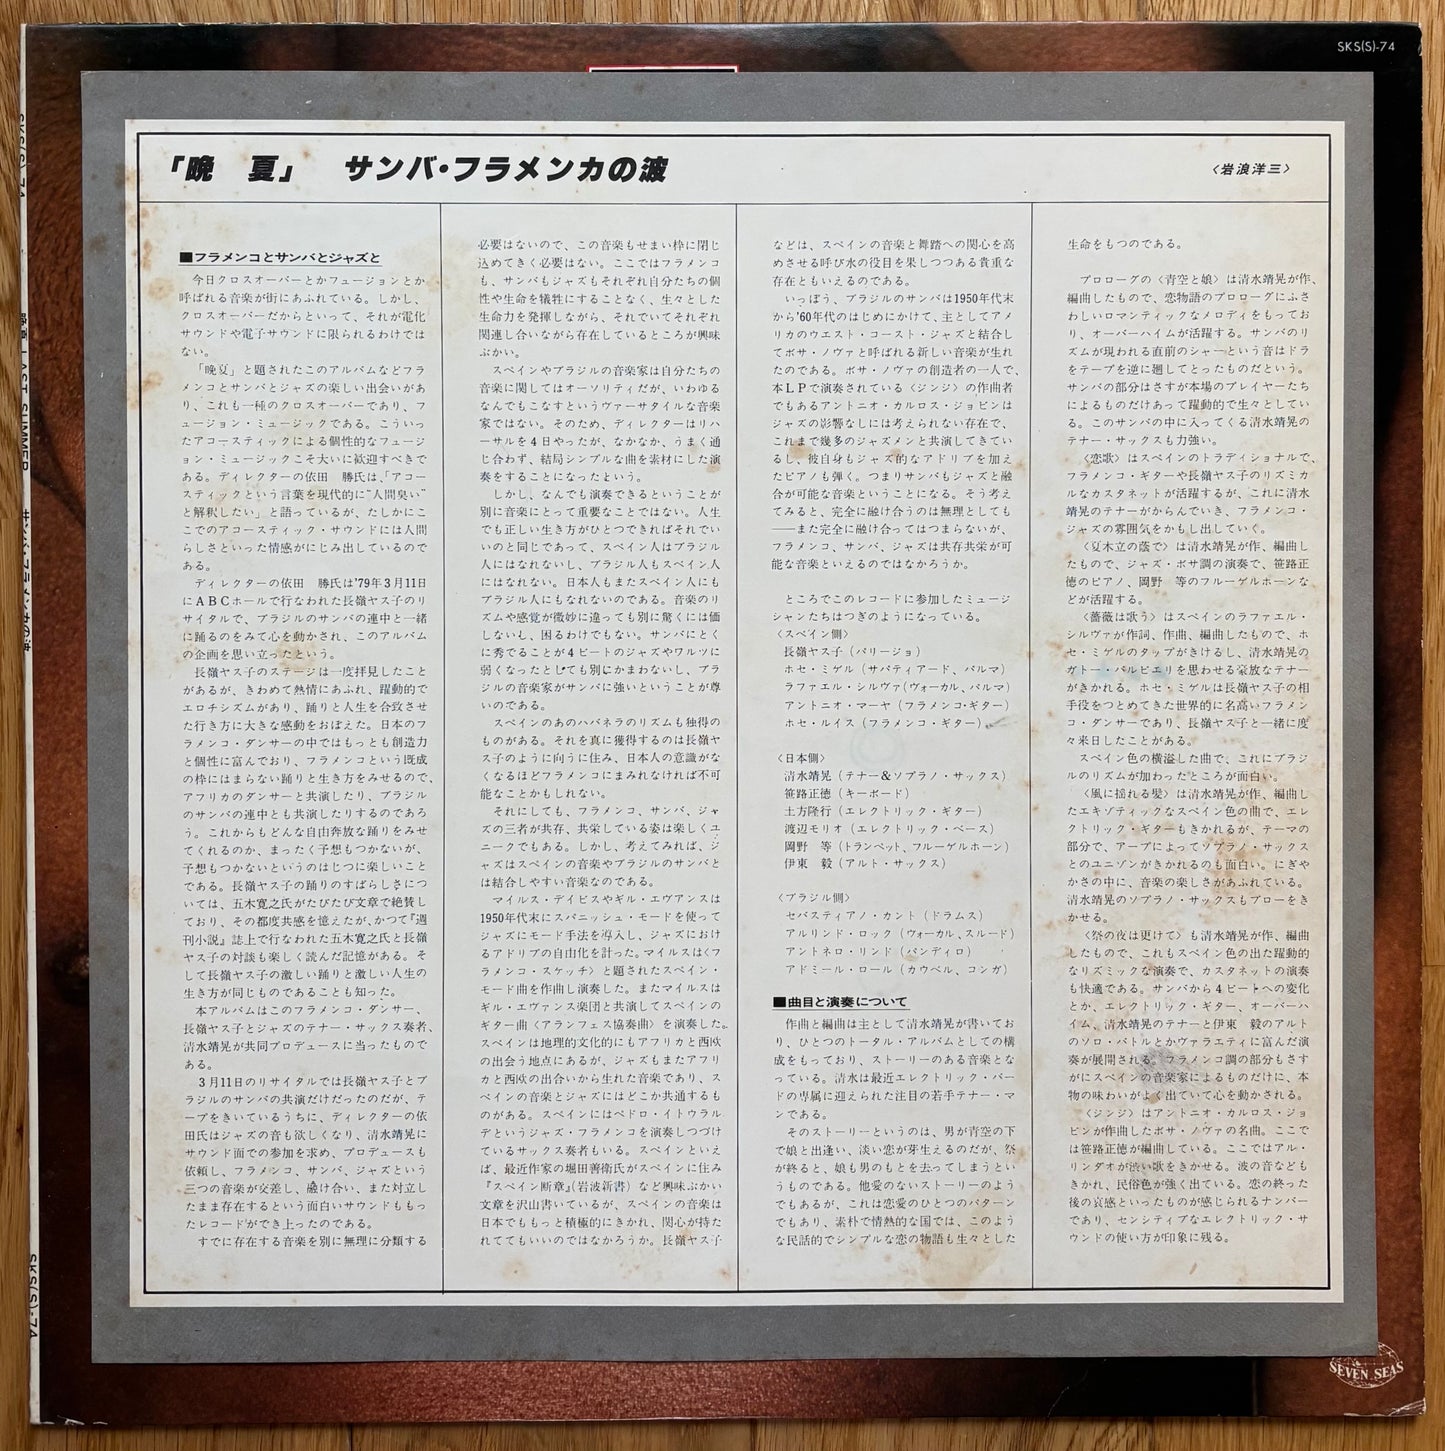 SKS(S)-74
「晩　夏」　サンバ・フラメンカの波
〈岩浪洋三〉
■フラメンコとサンバとジャズと
今日クロスオーバーとかフュージョンとか
呼ばれる音楽が街にあふれている。しかし、
クロスオーバーだからといって、それが電化
サウンドや電子サウンドに限られるわけでは
ない。
「晩夏」と題されたこのアルバムなどフラ
メンコとサンバとジャズの楽しい出会いがあ
り、これも一種のクロスオーバーであり、フ
ュージョン・ミュージックである。こういっ
たアコースティックによる個性的なフュージ
ョン・ミュージックこそ大いに歓迎すべきで
ある。ディレクターの依田　勝氏は、「アコー
スティックという言葉を現代的に"人間臭い"
と解釈したい」と語っているが、たしかにこ
こでのアコースティック・サウンドには人間
らしさといった情感がにじみ出しているので
ある。
ディレクターの依田　勝氏は'79年3月11日
にABCホールで行なわれた長嶺ヤス子のリ
サイタルで、ブラジルのサンバの連中と一緒
に踊るのをみて心を動かされ、このアルバム
の企画を思い立ったという。
長嶺ヤス子のステージは一度拝見したこと
があるが、きわめて熱情にあふれ、躍動的で
エロチシズムがあり、踊りと人生を合致させ
た行き方に大きな感動をおぼえた。日本のフ
ラメンコ・ダンサーの中ではもっとも創造力
と個性に富んでおり、フラメンコという既成
の枠にはまらない踊りと生き方をみせるので、
アフリカのダンサーと共演したり、ブラジル
のサンバの連中とも共演したりするのであろ
う。これからもどんな自由奔放な踊りをみせ
てくれるのか、まったく予想もつかないが、
予想もつかないというのはじつに楽しいこと
である。長嶺ヤス子の踊りのすばらしさにつ
いては、五木寛之氏がたびたび文章で絶賛し
ており、その都度共感を憶えたが、かつて『週
刊小説』誌上で行なわれた五木寛之氏と長嶺
ヤス子の対談も楽しく読んだ記憶がある。そ
して長嶺ヤス子の激しい踊りと激しい人生の
生き方が同じものであることも知った。
本アルバムはこのフラメンコ・ダンサー、
長嶺ヤス子とジャズのテナー・サックス奏者、
清水靖晃が共同プロデュースに当ったもので
ある。
3月11日のリサイタルでは長嶺ヤス子とブ
ラジルのサンバの共演だけだったのだが、テ
ープをきいているうちに、ディレクターの依
田氏はジャズの音も欲しくなり、清水靖晃に
サウンド面での参加を求め、プロデュースも
依頼し、フラメンコ、サンバ、ジャズという
三つの音楽が交差し、融け合い、また対立し
たまま存在するという面白いサウンドももっ
たレコードができ上ったのである。
すでに存在する音楽を別に無理に分類する
必要はないので、この音楽もせまい枠に閉じ
込めてきく必要はない。ここではフラメンコ
も、サンバもジャズもそれぞれ自分たちの個
性や生命を犠牲にすることなく、生々とした
生命力を発揮しながら、それでいてそれぞれ
関連し合いながら存在しているところが興味
ぶかい。
スペインやブラジルの音楽家は自分たちの
音楽に関してはオーソリティだが、いわゆる
なんでもこなすというヴァーサタイルな音楽
家ではない。そのため、ディレクターはリハ
ーサルを4日やったが、なかなか、うまく通
じ合わず、結局シンプルな曲を素材にした演
奏をすることになったという。
しかし、なんでも演奏できるということが
別に音楽にとって重要なことではない。人生
でも正しい生き方がひとつできればそれでい
いのと同じであって、スペイン人はブラジル
人にはなれないし、ブラジル人もスペイン人
にはなれない。日本人もまたスペイン人にも
ブラジル人にもなれないのである。音楽のリ
ズムや感覚が微妙に違っても別に驚くには価
しないし、困るわけでもない。サンバにとく
に秀でることが4ビートのジャズやワルツに
弱くなったとしても別にかまわないし、ブラ
ジルの音楽家がサンバに強いということが尊
いのである。
スペインのあのハバネラのリズムも独得の
ものがある。それを真に獲得するのは長嶺ヤ
ス子のように向うに住み、日本人の意識がな
くなるほどフラメンコにまみれなければ不可
能なことかもしれない。
それにしても、フラメンコ、サンバ、ジャ
ズの三者が共存、共栄している姿は楽しくユ
ニークでもある。しかし、考えてみれば、ジ
ャズはスペインの音楽やブラジルのサンバと
は結合しやすい音楽なのである。
マイルス・デイビスやギル・エヴァンスは
1950年代末にスパニッシュ・モードを使って
ジャズにモード手法を導入し、ジャズにおけ
るアドリブの自由化を計った。マイルスは〈フ
ラメンコ・スケッチ〉と題されたスペイン・
モード曲を作曲し演奏した。またマイルスは
ギル・エヴァンス楽団と共演してスペインの
ギター曲〈アランフェス協奏曲〉を演奏した。
スペインは地理的文化的にもアフリカと西欧
の出会う地点にあるが、ジャズもまたアフリ
カと西欧の出合いから生れた音楽であり、ス
ペインの音楽とジャズにはどこか共通するも
のがある。スペインにはペドロ・イトゥラル
デというジャズ・フラメンコを演奏しつづけ
ているサックス奏者もいる。スペインといえ
ば、最近作家の堀田善衛氏がスペインに住み
『スペイン断章』(岩波新書)など興味ぶかい
文章を沢山書いているが、スペインの音楽は
日本でももっと積極的にきかれ、関心が持た
れてもいいのではなかろうか。長嶺ヤス子
などは、スペインの音楽と舞踏への関心を高
めさせる呼び水の役目を果しつつある貴重な
存在ともいえるのである。
いっぽう、ブラジルのサンバは1950年代末
から'60年代のはじめにかけて、主としてアメ
リカのウエスト・コースト・ジャズと結合し
てボサ・ノヴァと呼ばれる新しい音楽が生れ
たのである。ボサ・ノヴァの創造者の一人で、
本LPで演奏されている〈ジンジ〉の作曲者
でもあるアントニオ・カルロス・ジョビンは
ジャズの影響なしには考えられない存在で、
これまで幾多のジャズメンと共演してきてい
るし、彼自身もジャズ的なアドリブを加え
たピアノも弾く。つまりサンバもジャズと融
合が可能な音楽ということになる。そう考え
てみると、完全に融け合うのは無理としても
――また完全に融け合ってはつまらないが、
フラメンコ、サンバ、ジャズは共存共栄が可
能な音楽といえるのではなかろうか。
ところでこのレコードに参加したミュージ
シャンたちはつぎのようになっている。
〈スペイン側〉
長嶺ヤス子（パリージョ）
ホセ・ミゲル（サパティアード、パルマ）
ラファエル・シルヴァ（ヴォーカル、パルマ）
アントニオ・マーヤ（フラメンコ・ギター）
ホセ・ルイス（フラメンコ・ギター）
〈日本側〉
清水靖晃（テナー&ソプラノ・サックス）
笹路正徳（キーボード）
土方隆行（エレクトリック・ギター）
渡辺モリオ（エレクトリック・ベース）
岡野　等（トランペット、フルーゲルホーン）
伊東　毅（アルト・サックス）
〈ブラジル側〉
セバスティアノ・カント（ドラムス）
アルリンド・ロック（ヴォーカル、スルード）
アントネロ・リンド（パンディロ）
アドミール・ロール（カウベル、コンガ）
■曲目と演奏について
作曲と編曲は主として清水靖晃が書いてお
り、ひとつのトータル・アルバムとしての構
成をもっており、ストーリーのある音楽とな
っている。清水は最近エレクトリック・バー
ドの専属に迎えられた注目の若手テナー・マ
ンである。
そのストーリーというのは、男が青空の下
で娘と出逢い、淡い恋が芽生えるのだが、祭
が終ると、娘も男のもとを去ってしまうとい
うものである。他愛のないストーリーのよう
でもあるが、これは恋愛のひとつのパターン
でもあり、素朴で情熱的な国では、このよう
な民話的でシンプルな恋の物語も生々とした
生命をもつのである。
プロローグの〈青空と娘〉は清水靖晃が作、
編曲したもので、恋物語のプロローグにふさ
わしいロマンティックなメロディをもってお
り、オーバーハイムが活躍する。サンバのリ
ズムが現われる直前のシャーという音はドラ
をテープを逆に廻してとったものだという。
サンバの部分はさすが本場のプレイヤーたち
によるものだけあって躍動的で生々としてい
る。このサンバの中に入ってくる清水靖晃の
テナー・サックスも力強い。
〈恋歌〉はスペインのトラディショナルで、
フラメンコ・ギターや長嶺ヤス子のリズミカ
ルなカスタネットが活躍するが、これに清水
靖晃のテナーがからんでいき、フラメンコ・
ジャズの雰囲気をかもし出していく。
〈夏木立の蔭で〉は清水靖晃が作、編曲し
たもので、ジャズ・ボサ調の演奏で、笹路正
徳のピアノ、岡野　等のフルーゲルホーンな
どが活躍する。
〈薔薇は歌う〉はスペインのラファエル・
シルヴァが作詞、作曲、編曲したもので、ホ
セ・ミゲルのタップがきけるし、清水靖晃の
ガトー・バルビエリを思わせる豪放なテナー
がきかれる。ホセ・ミゲルは長嶺ヤス子の相
手役をつとめてきた世界的に名高いフラメン
コ・ダンサーであり、長嶺ヤス子と一緒に度
々来日したことがある。
スペイン色の横溢した曲で、これにブラジ
ルのリズムが加わったところが面白い。
〈風に揺れる髪〉は清水靖晃が作、編曲し
たエキゾティックなスペイン色の曲で、エレ
クトリック・ギターもきかれるが、テーマの
部分で、アープによってソプラノ・サックス
とのユニゾンがきかれるのも面白い。にぎや
かさの中に、音楽の楽しさがあふれている。
清水靖晃のソプラノ・サックスもブローをき
かせる。
〈祭の夜は更けて〉も清水靖晃が作、編曲
したもので、これもスペイン色の出た躍動的
なリズミックな演奏で、カスタネットの演奏
も快適である。サンバから4ビートへの変化
とか、エレクトリック・ギター、オーバーハ
イム、清水靖晃のテナーと伊東　毅のアルト
のソロ・バトルとかヴァラエティに富んだ演
奏が展開される。フラメンコ調の部分もさす
がにスペインの音楽家によるものだけに、本
物の味わいがよく出ていて心を動かされる。
〈ジンジ〉はアントニオ・カルロス・ジョ
ビンが作曲したボサ・ノヴァの名曲。ここで
は笹路正徳が編曲している。ここではアル・
リンダオが渋い歌をきかせる。波の音なども
きかれ、民俗色が強く出ている。恋の終った
後の哀感といったものが感じられるナンバー
であり、センシティブなエレクトリック・サ
ウンドの使い方が印象に残る。
SEVEN SEAS
SKS(S)-74
晩夏 LAST SUMMER
サンバ・フラメンカの波
SKS(S)-74